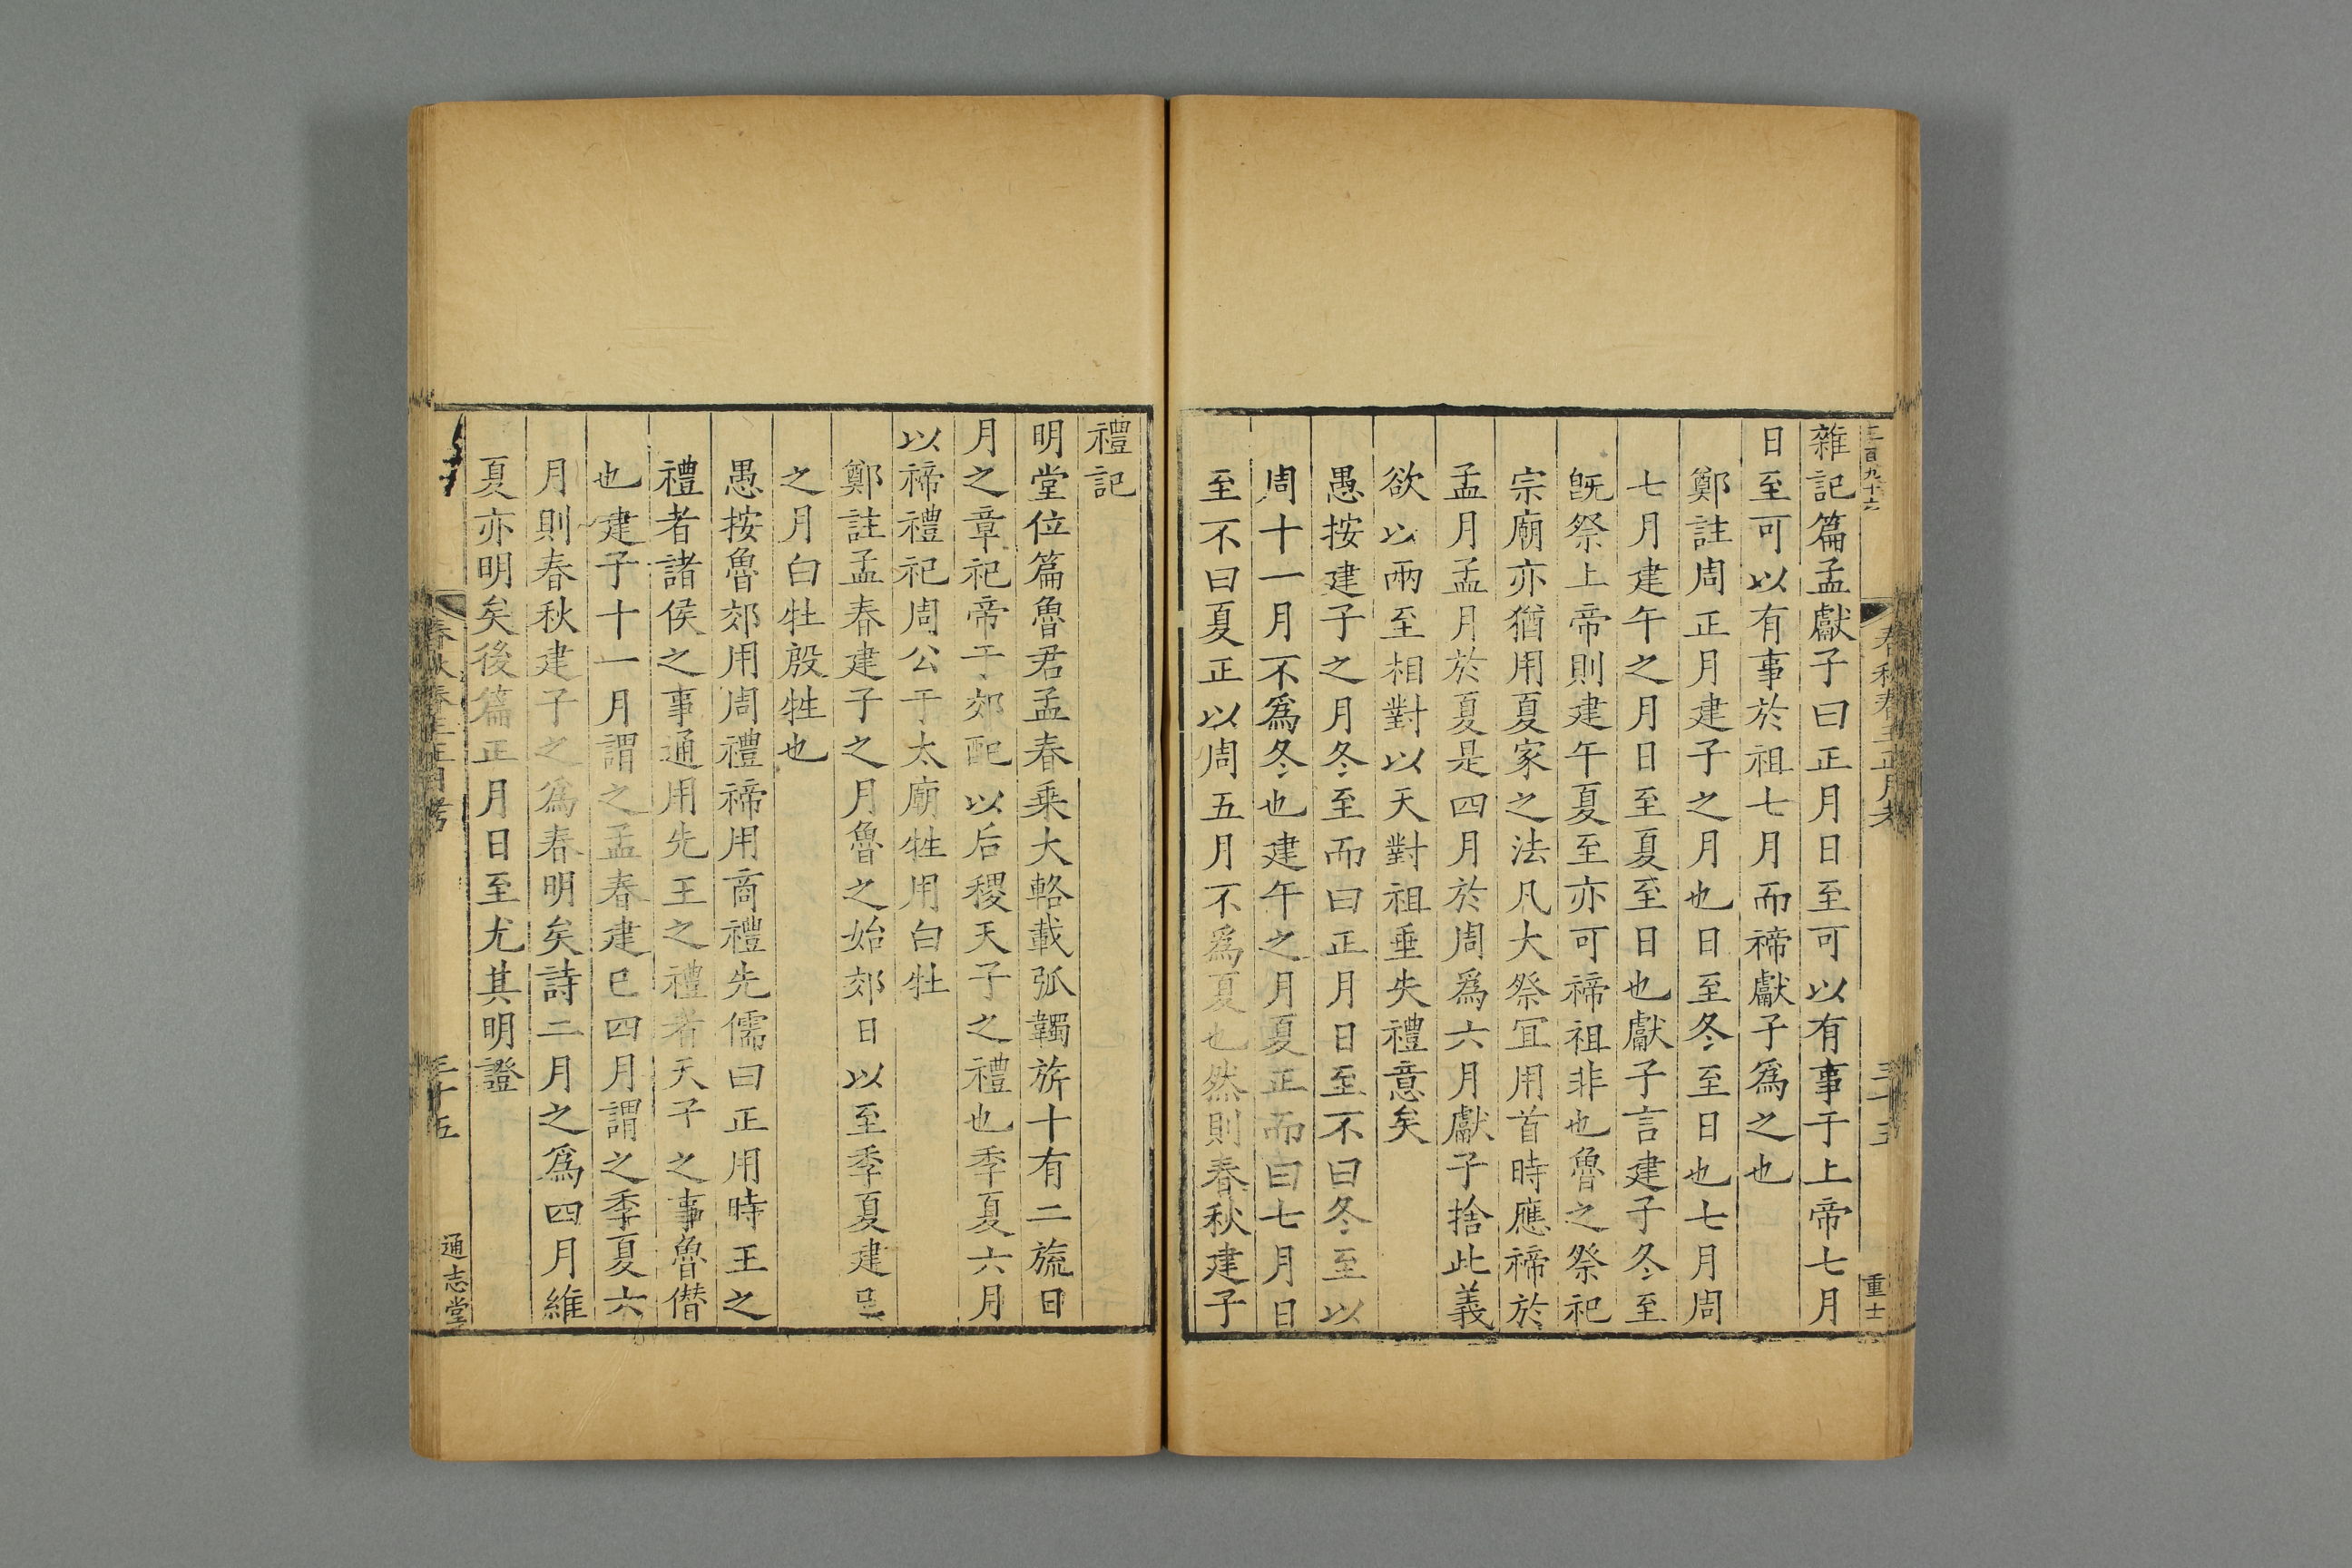 雜記篇孟獻子曰正月日至可以有事于上帝七月
日至可以有事於祖七月而禘獻子爲之也
鄭註周正月建子之月也日至冬至日也七月周
七月建午之月日至夏至日也獻子言建子冬至
旣祭上帝則建午夏至亦可禘祖非也魯之祭祀
宗廟亦猶用夏家之法凡大祭宜用首時應禘於
孟月孟月於夏是四月於周爲六月獻子捨此義
欲以兩至相對以天對祖乖失禮意矣
愚按建子之月冬至而曰正月日至不曰冬至以
周十一月不爲冬也建午之月夏正而曰七月日
至不曰夏正以周五月不爲夏也然則春秋建子
春秋春王正月考
重士
禮記
明堂位篇魯君孟春乘大輅載弧韣旂十有二旒日
月之章祀帝于郊配以后稷天子之禮也季夏六月
以禘禮祀周公于太廟牲用白牡
鄭註孟春建子之月魯之始郊日以至季夏建巳
之月白牡殷牲也
愚按魯郊用周禮禘用商禮先儒曰正用時王之
禮者諸侯之事通用先王之禮者天子之事魯僭
也建子十一月謂之孟春建巳四月謂之季夏六
月則春秋建子之爲春明矣詩二月之爲四月維
夏亦明矣後篇正月日至尤其明證
春秋春王正月考
三十五
通志堂